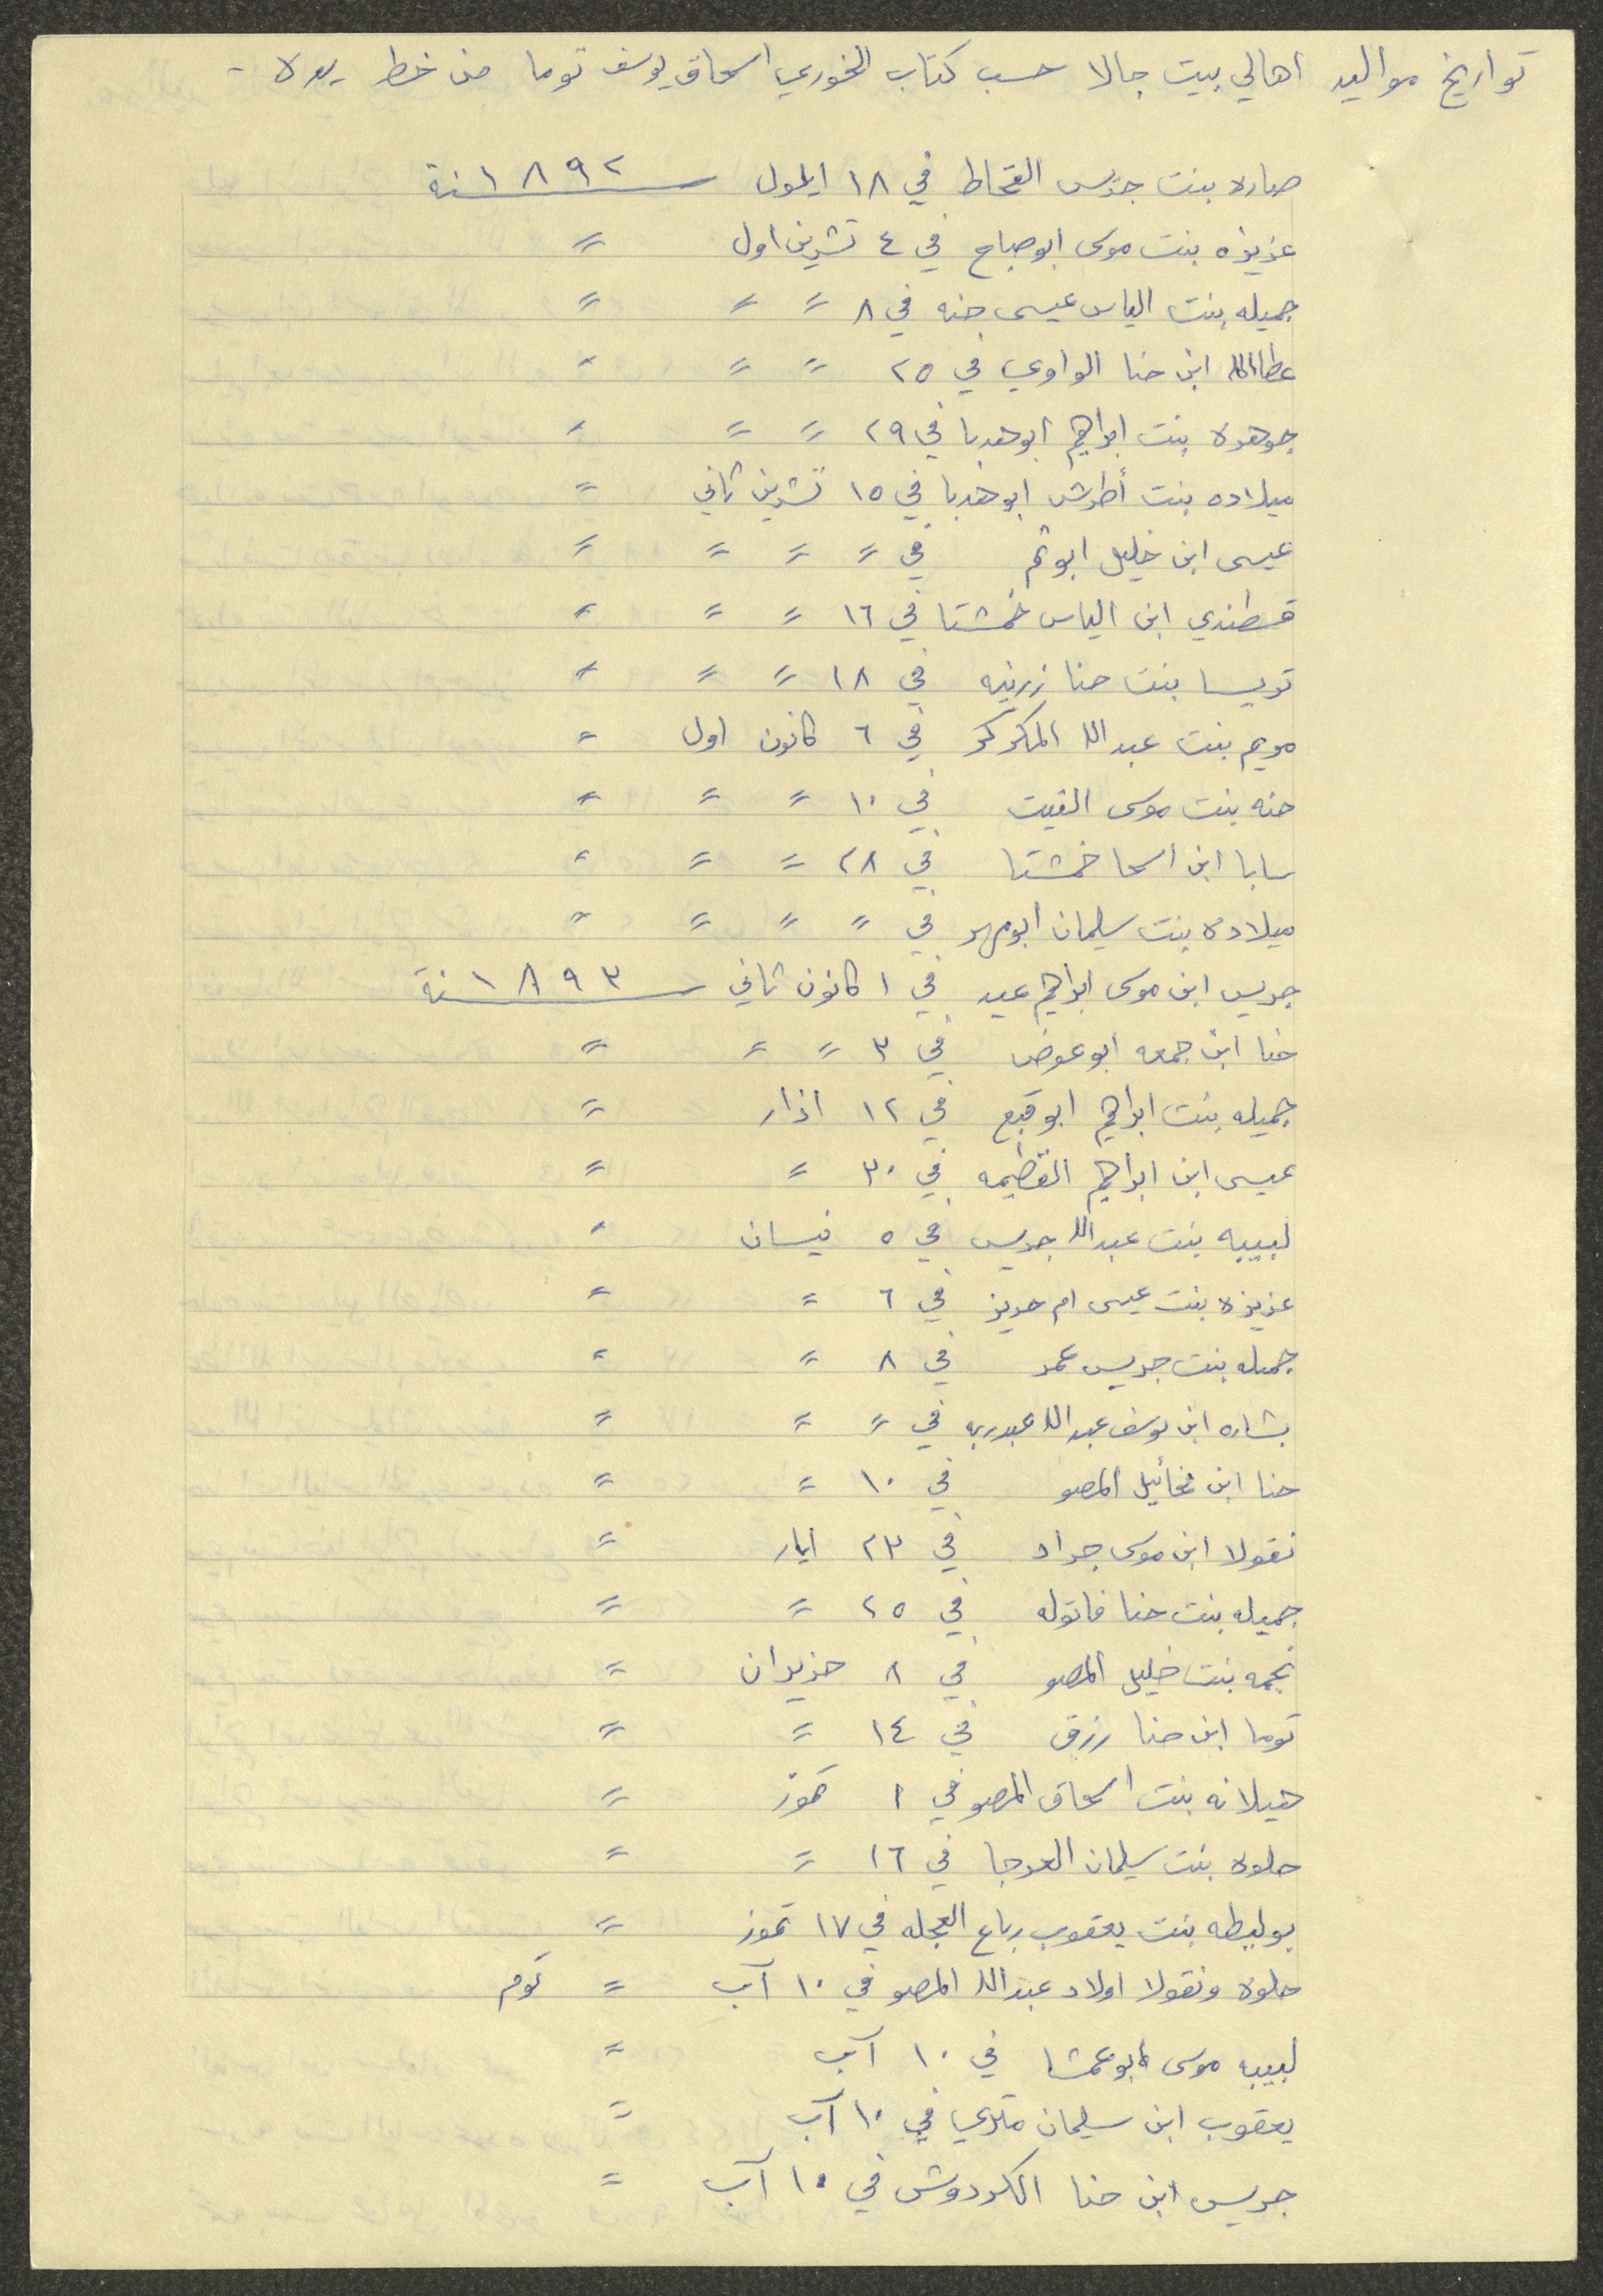 تواريخ مواليد اهالي بيت جالا حسب كتاب الخوري اسحاق يوسف توما من خط يده -
صاره بنت جريس القحاط في ١٨ ايلول سنة ١٨٩٢
عزيزه بنت موسى ابو صباح في ٤ تشرين اول 〃
جميله بنت الياس عيسى حنه في ٨ 〃 〃 〃
عطاالله ابن حنا الواوي في ٢٥ 〃 〃 〃
جوهره بنت ابراهيم ابو هدبا في ٢٩ 〃 〃 〃
ميلاده بنت أطرش ابو هدبا في ١٥ تشرين ثاني 〃
عيسى ابن خليل ابو تم في 〃 〃 〃 〃
قسطندي ابن الياس خمشتا في ١٦ 〃 〃 〃
تريسا بنت حنا زرينه في ١٨ 〃 〃 〃
مريم بنت عبدالله المكركر في ٦ كانون اول 〃
حنه بنت موسى القيت في ١٠ 〃 〃 〃
سابا ابن اسحا خمشتا في ٢٨ 〃 〃 〃
ميلاده بنت سليمان ابو مهر في 〃 〃 〃 〃
جريس ابن موسى ابراهيم عيد في ١ كانون ثاني سنة ١٨٩٣
حنا ابن جمعه ابو عوض في ٣ 〃 〃 〃
جميله بنت ابراهيم ابو قبع في ١٢ اذار 〃
عيسى ابن ابراهيم القطيمه في ٣٠ 〃 〃
لبيبه بنت عبدالله جريس في ٥ نيسان 〃
عزيزه بنت عيسى ام حريز في ٦ 〃 〃
جميله بنت جريس عمر في ٨ 〃 〃
بشاره ابن يوسف عبدالله عبدربه في 〃 〃 〃
حنا ابن مخائيل المصو في ١٠ 〃 〃
نقولا ابن موسى جراد في ٢٣ ايار 〃
جميله بنت حنا فاتوله في ٢٥ 〃 〃
نجمه بنت خليل المصو في ٨ حزيران 〃
توما ابن حنا رزق في ١٤ 〃 〃
هيلانه بنت اسحاق المصو في ١ تموز 〃
حلوه بنت سليمان العرجا في ١٦ 〃 〃
بوليطه بنت يعقوب رباع العجله في ١٧ تموز 〃
حلوه ونقولا اولاد عبدالله المصو في ١٠ آب 〃 توم
لبيبه موسى ابو عمشا في ١٠ آب 〃
يعقوب ابن سليمان متري في ١٠ آب 〃
جريس ابن حنا الكردوش في ١٠ آب 〃